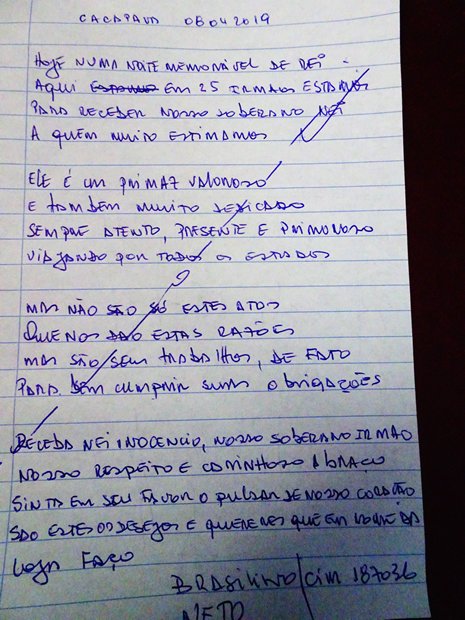 CACAPAVA 08042019
HOJE NUMA NOITE MEMORÁVEL DE REI
AQUI ESTAMOS EM 25 IRMÃOS ESTAMOS
PARA RECEBER NOSSO SOBERANO NEI
A QUEM MUITO ESTIMAMOS
ELE É UM PRIMAZ VALOROSO
E TAMBÉM MUITO DEDICADO
SEMPRE ATENTO, PRESENTE E PRIMOROSO
VIAJANDO POR TODOS OS ESTADOS
MAS NÃO SÃO SÓ ESTES ATOS
QUE NOS DÃO ESTAS RAZÕES
MAS SÃO SEUS TRABALHOS, DE FATO
PARA BEM CUMPRIR SUAS OBRIGAÇÕES
RECEBA NEI INOCENCIO, NOSSO SOBERANO IRMÃO
NOSSO RESPEITO E CARINHOSO ABRAÇO
SINTA EM SEU FAVOR O PULSAR DE NOSSO CORAÇÃO
SÃO ESTES OS DESEJOS E QUERERES QUE EM NOME DA
LOJA FAÇO
BRASILINO CIM 187036
NETO